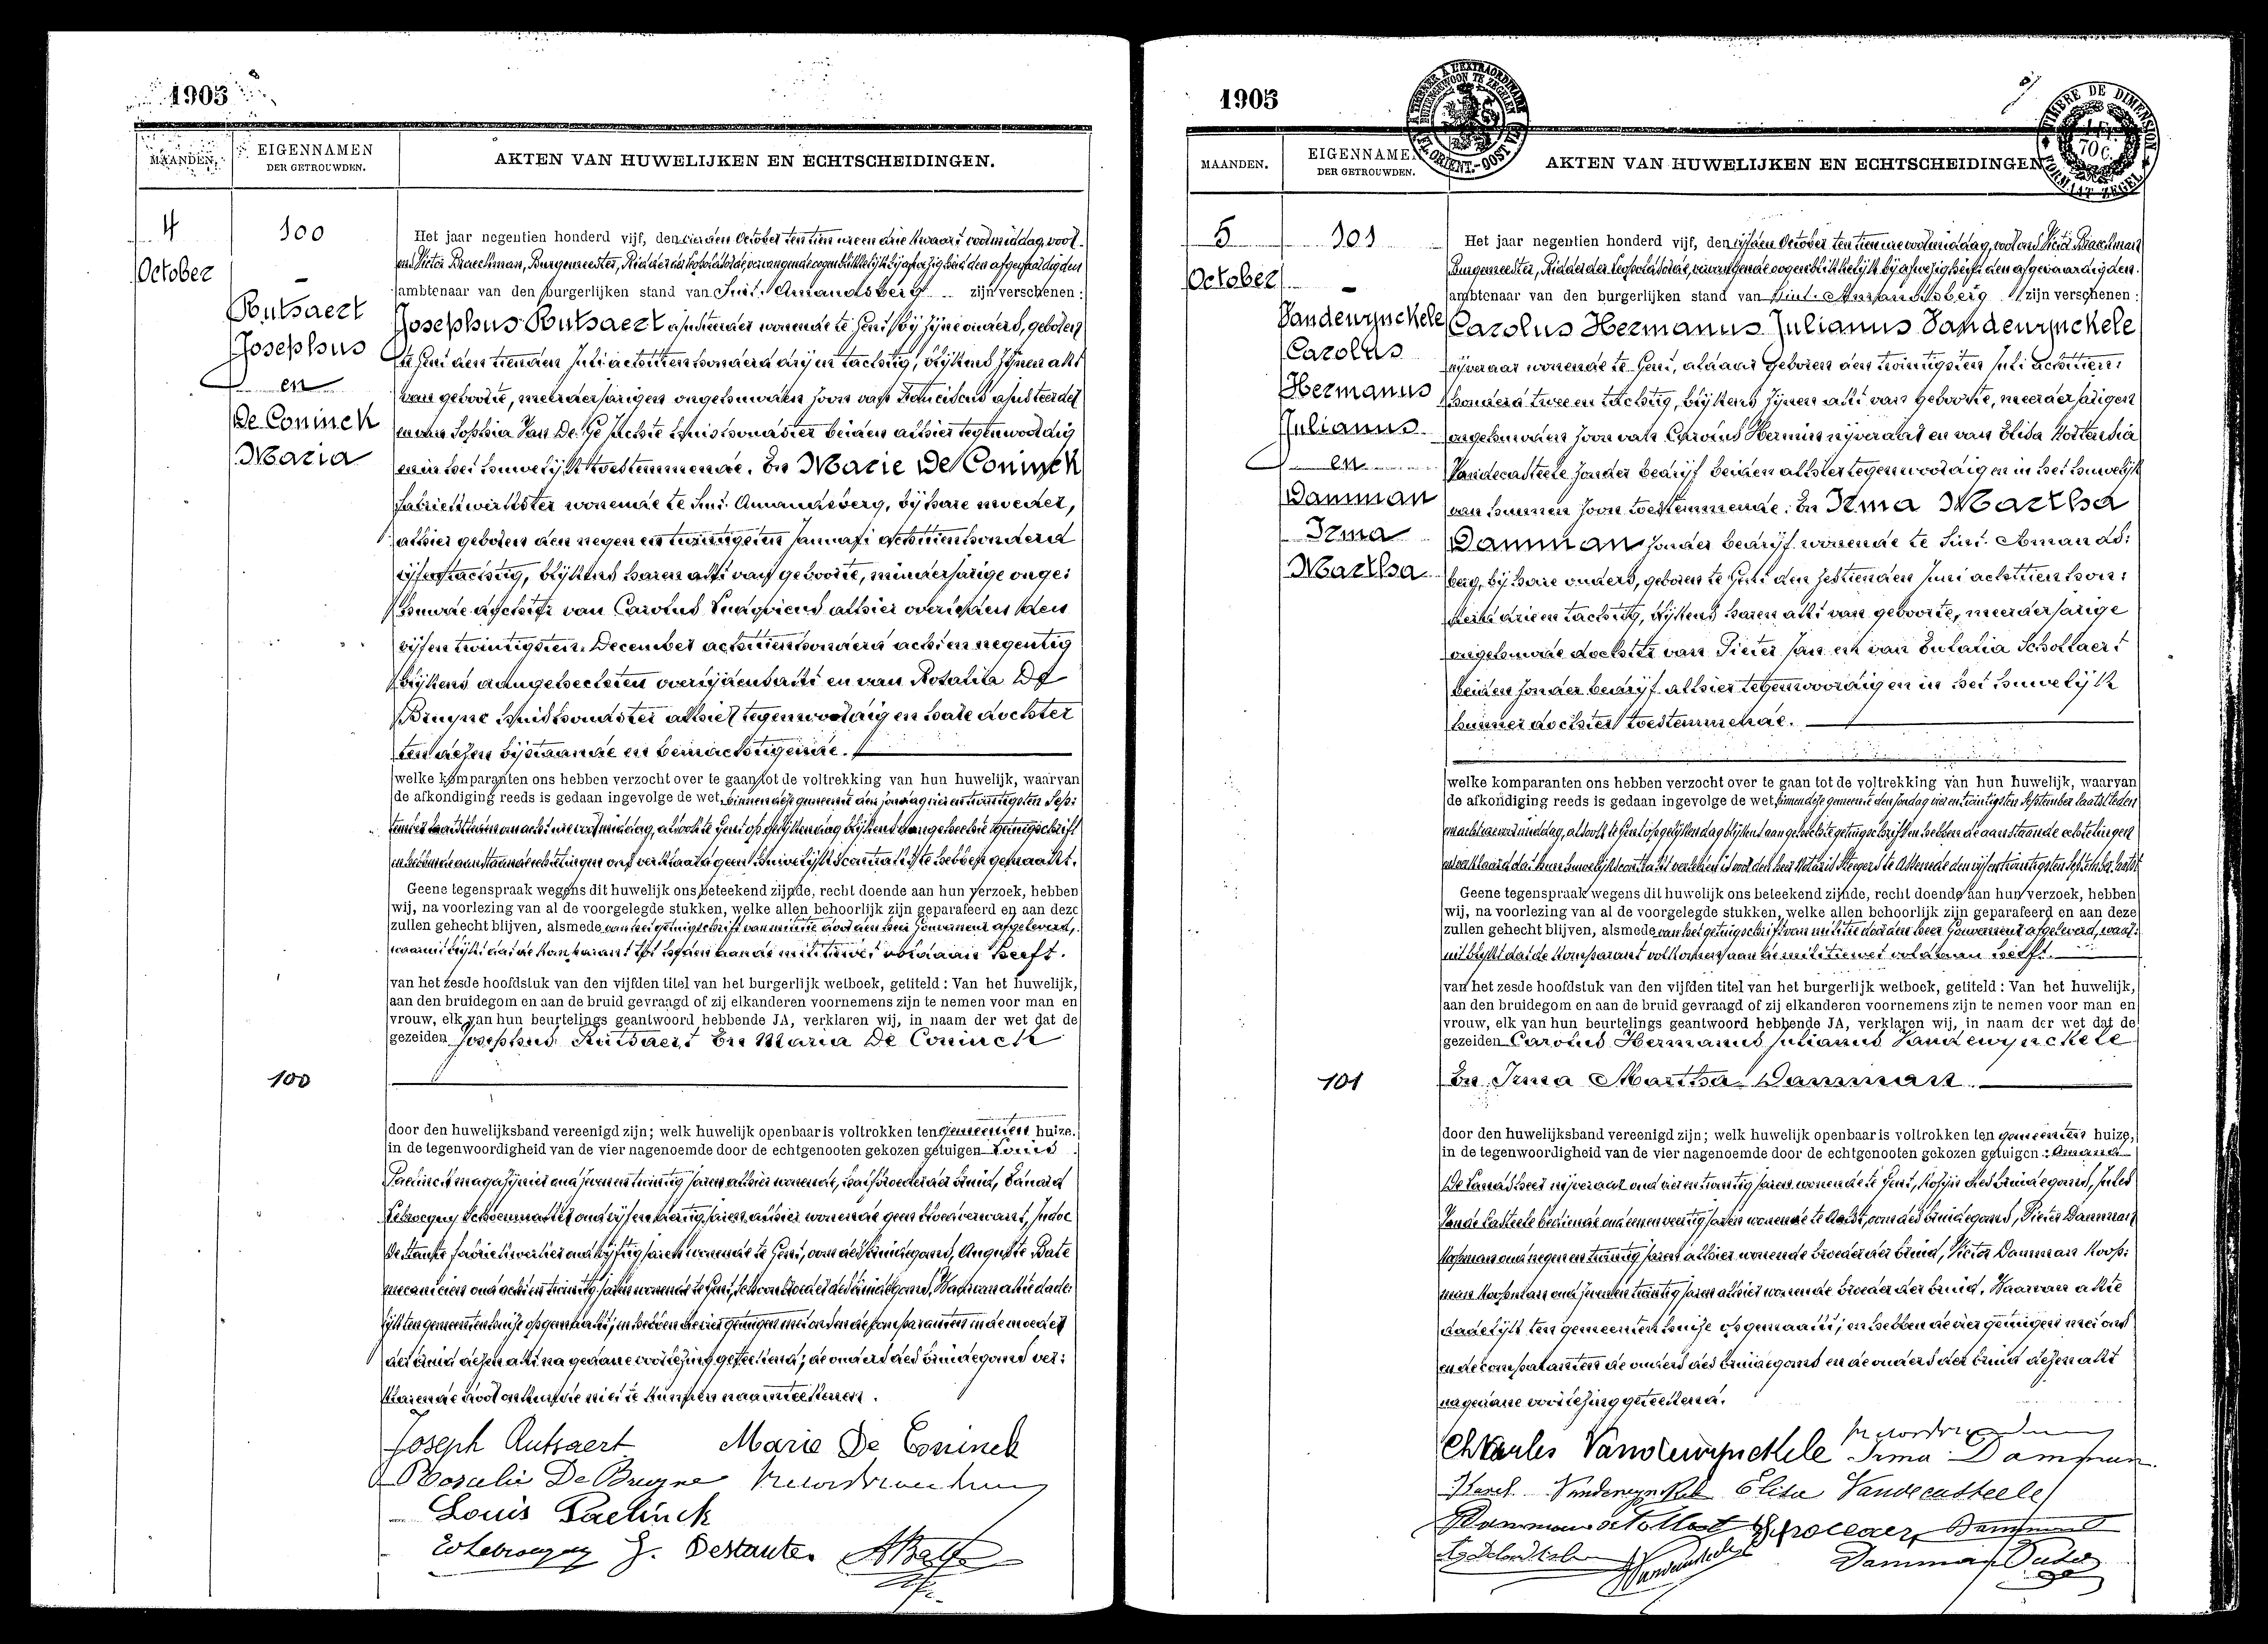 1905
MAANDEN.
EIGENNAMEN
DER GETROUWDEN.
AKTEN VAN HUWELIJKEN EN ECHTSCHEIDINGEN.
4
October
100
Rutsaert
Josephus
en
De Coninck
Maria
Het jaar negentien honderd vijf, den vierden October ten tien uren en drie kwaart voormiddag, voor
ons Victor Braeckman, Burgemeester, Ridder der Leopoldsorde, vervangende oogenblikkelijk bij afwezigheid den afgevaardigden
ambtenaar van den burgerlijken stand van Sint-Amandsberg zijn verschenen:
Josephus Rutsaert wonende te Gent bij zijne ouders, geboren
te Gent den tienden Juli achttien honderd drij en tachtig, blijkens zijnen akt
van geboorte, meerderjarigen ongehuwden zoon van Franciscus
en van Sophia Van De huishoudster beiden alhier tegenwoordig
en in het huwelijk toestemmende. En Marie De Coninck
fabriekwerkster wonende te Sint-Amandsberg, bij hare moeder,
alhier geboren den negen en twintigsten Januari achttien honderd
vijf en tachtig, blijkens haren akt van geboorte, minderjarige onge:
huwde dochter van Carolus Ludovicus alhier overleden den
vijf en twintigsten December achttien honderd acht en negentig
blijkens aangehechten overlijdensakt en van Rosalia De
Bruyne huishoudster alhier tegenwoordig en hare dochter
ten dezen bijstaande en bemachtigende.
welke komparanten ons hebben verzocht over te gaan tot de voltrekking van hun huwelijk, waarvan
de afkondiging reeds is gedaan ingevolge de wet, binnen deze gemeente den zondag vier en twintigsten Sep:
tember laatstleden om acht ure voormiddag, alsook te Gent op gelijken dag blijkens aangehechte getuigschrift
en hebben de aanstaande echtelingen ons verklaard geen huwelijkscontrakt te hebben gemaakt.
Geene tegenspraak wegens dit huwelijk ons beteekend zijnde, recht doende aan hun verzoek, hebben
wij, na voorlezing van al de voorgelegde stukken, welke allen behoorlijk zijn geparafeerd en aan deze
zullen gehecht blijven, alsmede van het getuigschrift van militie door den heer Gouverneur afgeleverd,
waaruit blijkt dat de komparant tot heden aan de militiewet voldaan heeft.
van het zesde hoofdstuk van den vijfden titel van het burgerlijk wetboek, getiteld: Van het huwelijk,
aan den bruidegom en aan de bruid gevraagd of zij elkanderen voornemens zijn te nemen voor man en
vrouw, elk van hun beurtelings geantwoord hebbende JA, verklaren wij, in naam der wet dat de
gezeiden Josephus Rutsaert En Maria De Coninck
100
door den huwelijksband vereenigd zijn; welk huwelijk openbaar is voltrokken ten gemeenten huize.
in de tegenwoordigheid van de vier nagenoemde door de echtgenooten gekozen getuigen Louis
Paelinck magazijnier oud zeven en twintig jaren alhier wonende, halfbroeder der bruid, Eduard
Lebrocquy schoenmaker oud vijf en dertig jaren alhier wonende geen bloedverwant, Judoc
De Stanke fabriekwerker oud vijftig jaren wonende te Gent, oom des bruidegoms, Auguste Bate
mecanicien oud acht en twintig jaren wonende te Gent, schoonbroeder des bruidegoms, Waarvan akte dade:
lijk ten gemeentenhuize opgemaakt; en hebben de vier getuigen met ons en de comparanten en de moeder
der bruid dezen akt na gedane voorlezing geteekend; de ouders des bruidegoms ver:
klarende door onkunde niet te kunnen naamteekenen.
Joseph Rutsaert Marie De Coninck
Rosalie De Bruyne
Louis Paelinck
J. Destante. A Bate
1905
MAANDEN.
EIGENNAMEN
DER GETROUWDEN.
AKTEN VAN HUWELIJKEN EN ECHTSCHEIDINGEN
TIMBRE DE DIMENSION
1 FR.
70 C.
FORMAAT ZEGEL
5
October
101
Vandewynckele
Carolus
Hermanus
Julianus
en
Damman
Irma
Martha
Het jaar negentien honderd vijf, den vijfden October ten tien ure voormiddag, voor ons Victor Braeckman
Burgemeester, Ridder der Leopoldsorde, vervangende oogenblikkelijk bij afwezigheid den afgevaardigden.
ambtenaar van den burgerlijken stand van Sint-Amandsberg zijn verschenen:
Carolus Hermanus Julianus Vandewynckele
nijveraar wonende te Gent, aldaar geboren den twintigsten Juli achttien:
honderd twee en tachtig, blijkens zijnen akt van geboorte, meerderjarigen
ongehuwden zoon van Carolus Hermin nijveraar en van Elisa Hortensia
Vandecasteele zonder bedrijf beiden alhier tegenwoordig en in het huwelijk
van hunnen zoon toestemmende. En Irma Martha
Damman zonder bedrijf wonende te Sint-Amands:
berg, bij hare ouders, geboren te Gent den zestienden Juni achttien hon:
derd drie en tachtig, blijkens haren akt van geboorte, meerderjarige
ongehuwde dochter van Pieter Jan en van Eulalia Schollaert
beiden zonder bedrijf alhier tegenwoordig en in het huwelijk
hunner dochter toestemmende.
welke komparanten ons hebben verzocht over te gaan tot de voltrekking van hun huwelijk, waarvan
de afkondiging reeds is gedaan ingevolge de wet, binnen deze gemeente den zondag vier en twintigsten September laatstleden
om acht ure voormiddag, alsook te Gent op gelijken dag blijkens aangehechte getuigschrift en hebben de aanstaande echtelingen
ons verklaard dat hun huwelijkscontrakt verleden is voor den heer Notaris Steegers te Assenede den vijf en twintigsten September laatst
Geene tegenspraak wegens dit huwelijk ons beteekend zijnde, recht doende aan hun verzoek, hebben
wij, na voorlezing van al de voorgelegde stukken, welke allen behoorlijk zijn geparafeerd en aan deze
zullen gehecht blijven, alsmede van het getuigschrift van militie door den heer Gouverneur afgeleverd, waar:
uit blijkt dat de komparant volkomen aan de militiewet voldaan heeft.
van het zesde hoofdstuk van den vijfden titel van het burgerlijk wetboek, getiteld: Van het huwelijk,
aan den bruidegom en aan de bruid gevraagd of zij elkanderen voornemens zijn te nemen voor man en
vrouw, elk van hun beurtelings geantwoord hebbende JA, verklaren wij, in naam der wet dat de
gezeiden Carolus Hermanus Julianus Vandewynckele
101
En Irma Martha Damman
door den huwelijksband vereenigd zijn; welk huwelijk openbaar is voltrokken ten gemeenten huize,
in de tegenwoordigheid van de vier nagenoemde door de echtgenooten gekozen getuigen: Amand
De Landsheer nijveraar oud vier en twintig jaren wonende te Gent, kozijn des bruidegoms, Jules
Vande Casteele bediende oud een en veertig jaren wonende te Aalst, oom des bruidegoms, Pieter Damman
koopman oud negen en twintig jaren alhier wonende broeder der bruid, Victor Damman koop:
man koopman oud zeven en twintig jaren alhier wonende broeder der bruid. Waarvan akte
dadelijk ten gemeentenhuize opgemaakt; en hebben de vier getuigen met ons
en de comparanten de ouders des bruidegoms en de ouders der bruid dezen akt
na gedane voorlezing geteekend.
Charles Vandewynckele Irma Damman
Vandewynckele Elisa Vandecasteele
Damman
Vandecasteele Damman